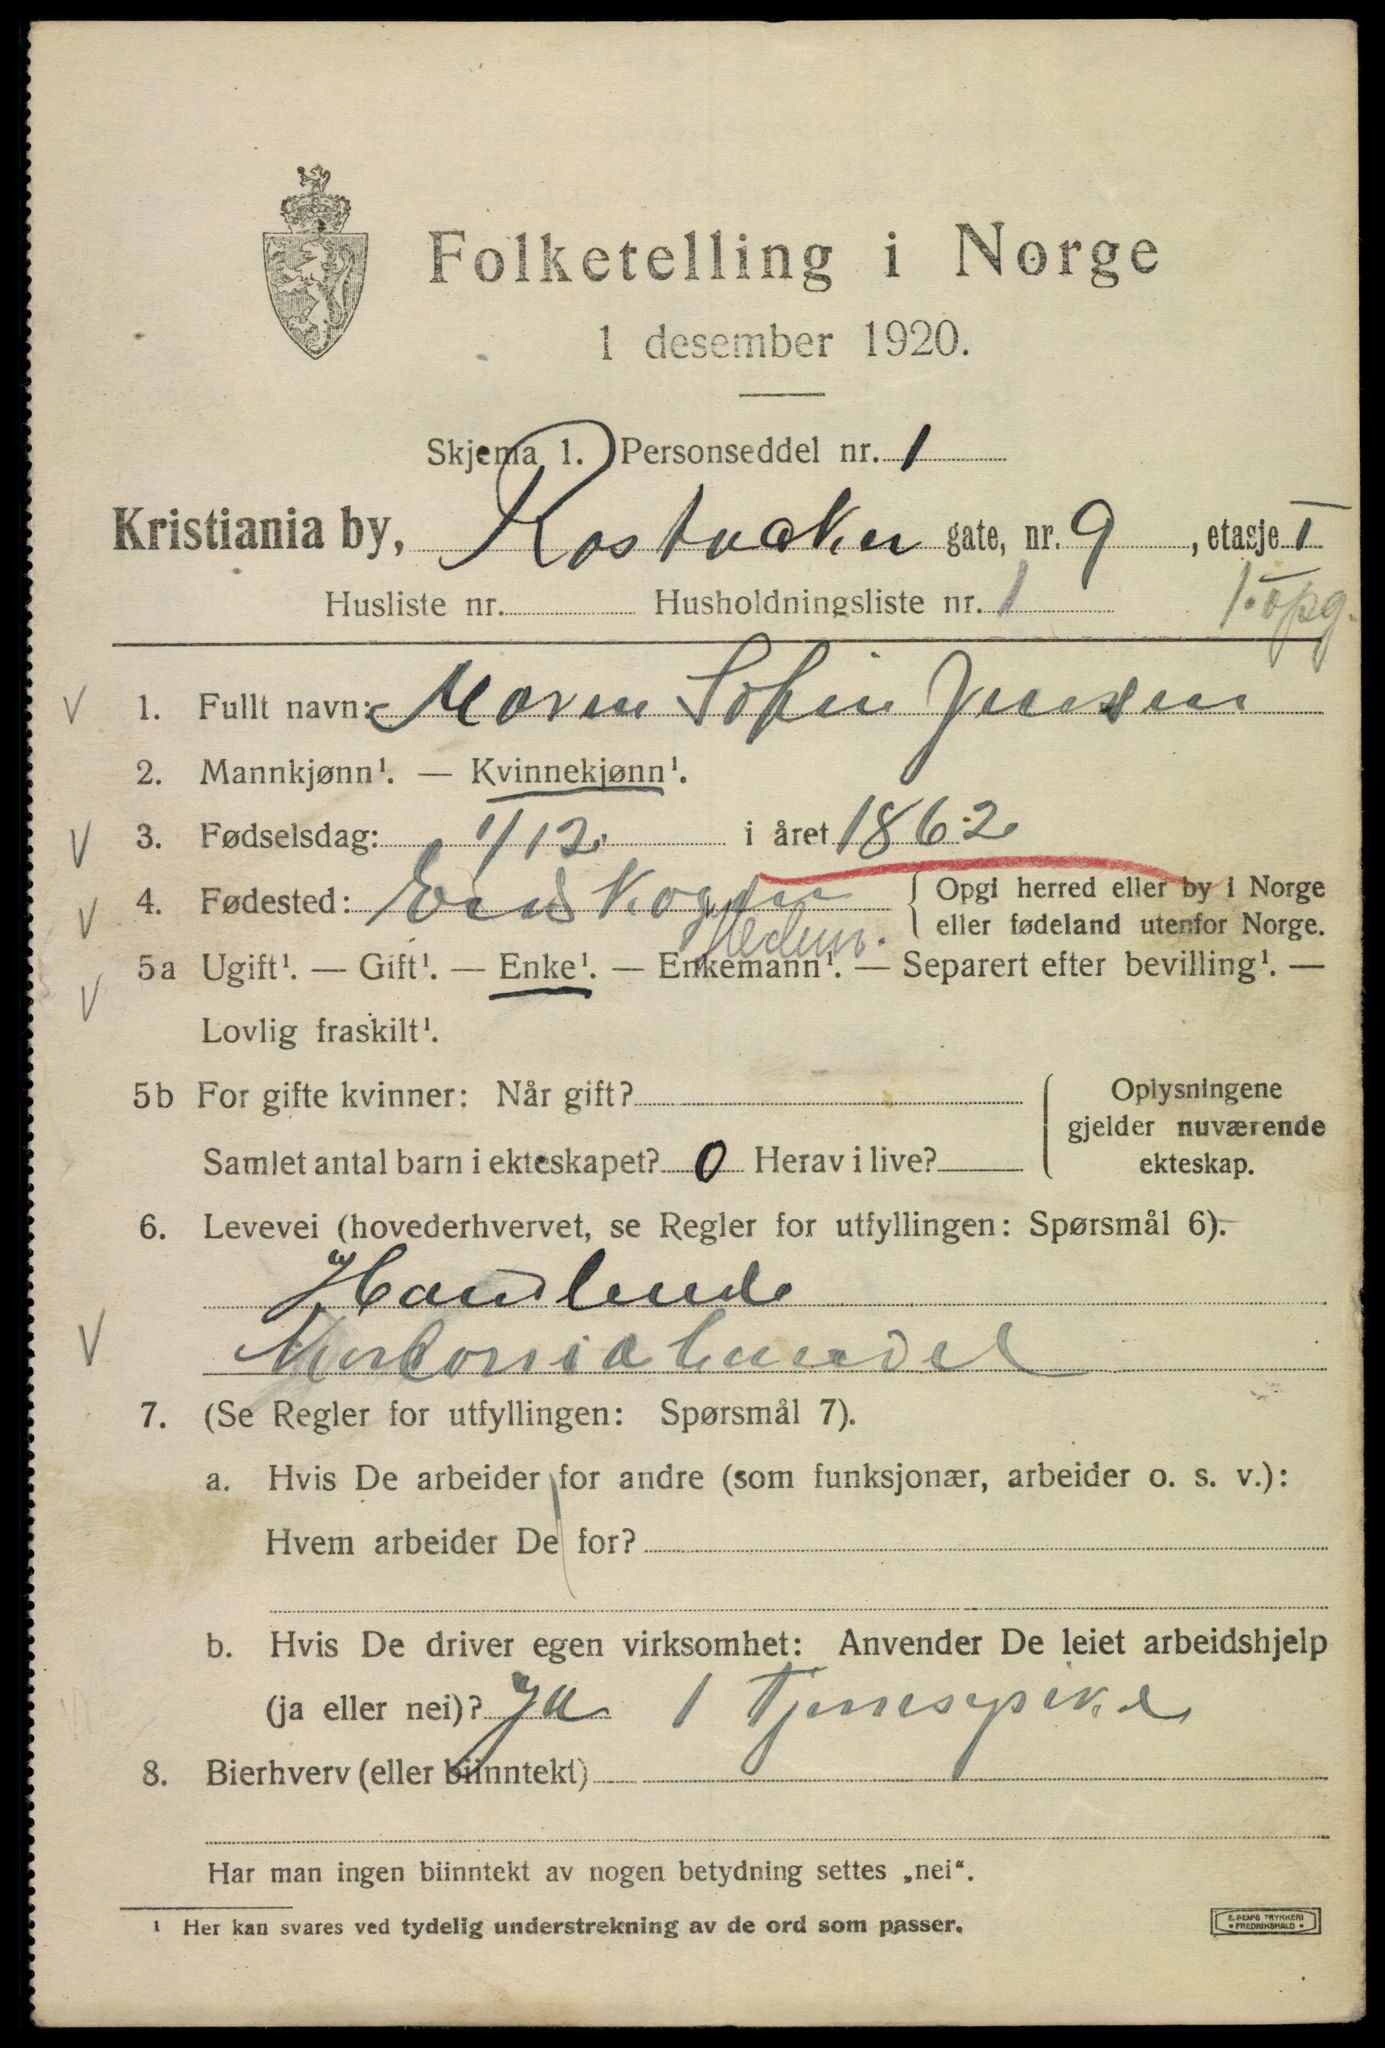 Folketelling i Norge
1 desember 1920.
Skjema 1. Personseddel nr. 1
Kristiania by, Rostocker gate, nr. 9, etasje I
Husliste nr. Husholdningsliste nr. 1 1. opg.
1. Fullt navn: Maren Sofie Jensen
2. Mannkjønn¹. — Kvinnekjønn¹.
3. Fødselsdag: 1/12 i året 1862
4. Fødested: Eidskogen { Opgi herred eller by i Norge
eller fødeland utenfor Norge.
Hedm.
5a Ugift¹. — Gift¹. — Enke¹. — Enkemann¹. — Separert efter bevilling¹. —
Lovlig fraskilt¹.
5b For gifte kvinner: Når gift? { Oplysningene
gjelder nuværende
Samlet antal barn i ekteskapet? 0 Herav i live? ekteskap.
6. Levevei (hovederhvervet, se Regler for utfyllingen: Spørsmål 6).
Handlende
7. (Se Regler for utfyllingen: Spørsmål 7).
a. Hvis De arbeider for andre (som funksjonær, arbeider o. s. v.):
Hvem arbeider De for?
b. Hvis De driver egen virksomhet: Anvender De leiet arbeidshjelp
(ja eller nei)? Ja 1 tjenespike
8. Bierhverv (eller biinntekt)
Har man ingen biinntekt av nogen betydning settes „nei“.
¹ Her kan svares ved tydelig understrekning av de ord som passer.
E. SEMS TRYKKERI
• FREDRIKSHALD •